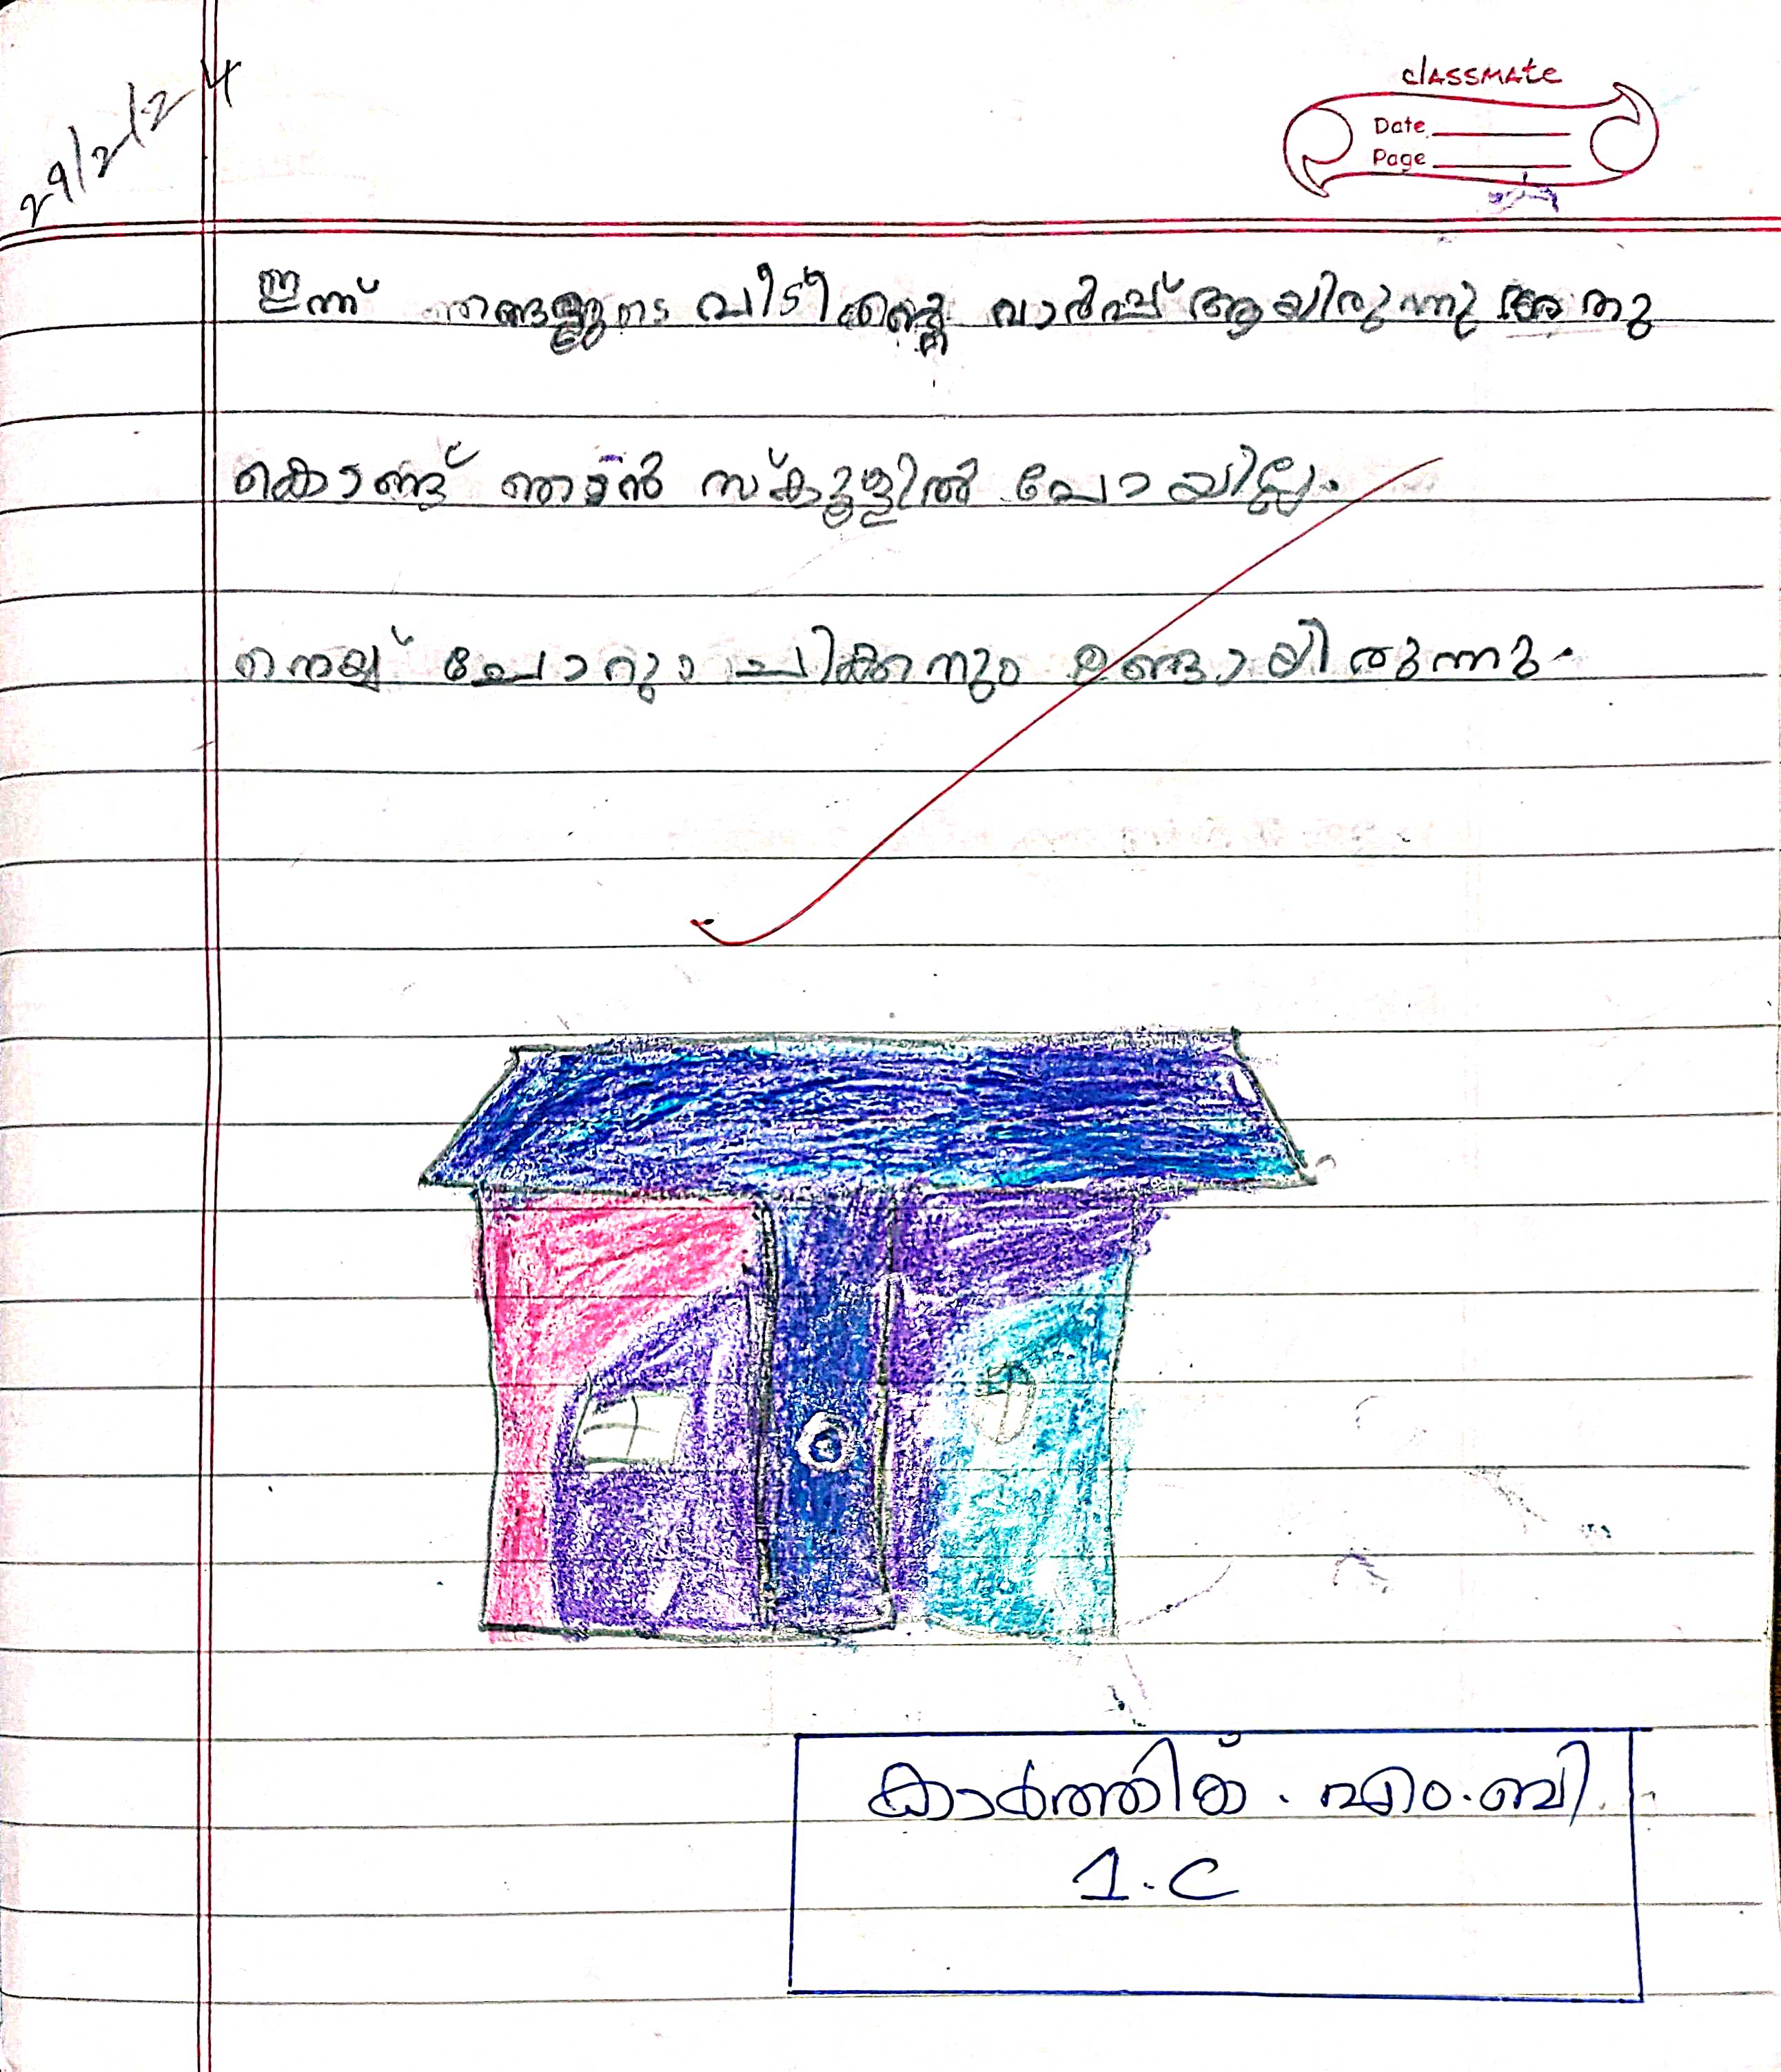 29/2/24
classmate
Date
Page
ഇന്ന് ഞങ്ങളുടെ വീടിന്റെ വാർപ്പ് ആയിരുന്നു അതു
കൊണ്ട് ഞാൻ സ്കൂളിൽ പോയില്ല.
നെയ്യ് ചോറും ചിക്കനും ഉണ്ടായിരുന്നു.
കാർത്തിക്. എം.ബി.
1.C